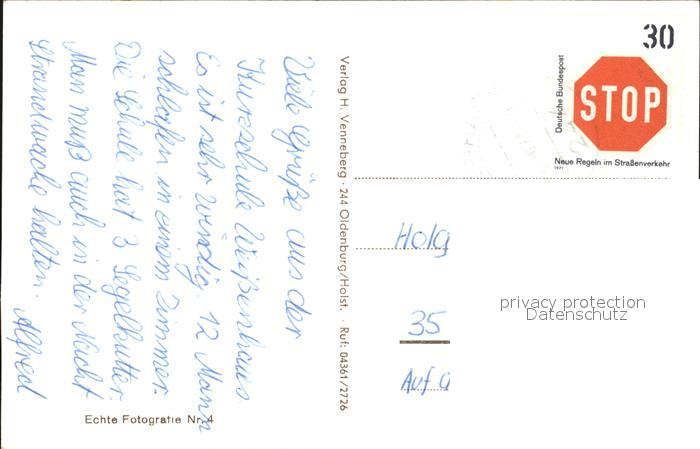 Viele Grüße aus der
Kurzschule Weißenhaus
Es ist sehr windig. 12 Mann
schlafen in einem Zimmer.
Die Schule hat 3 Segelkutter.
Man muß auch in der Nacht
Strandwache halten. Alfred
Echte Fotografie Nr. 4
Verlag H. Venneberg · 244 Oldenburg/Holst. · Ruf: 04361/2726
30
Deutsche Bundespost
STOP
Neue Regeln im Straßenverkehr
1971
Holg
privacy protection
Datenschutz
35
Auf d